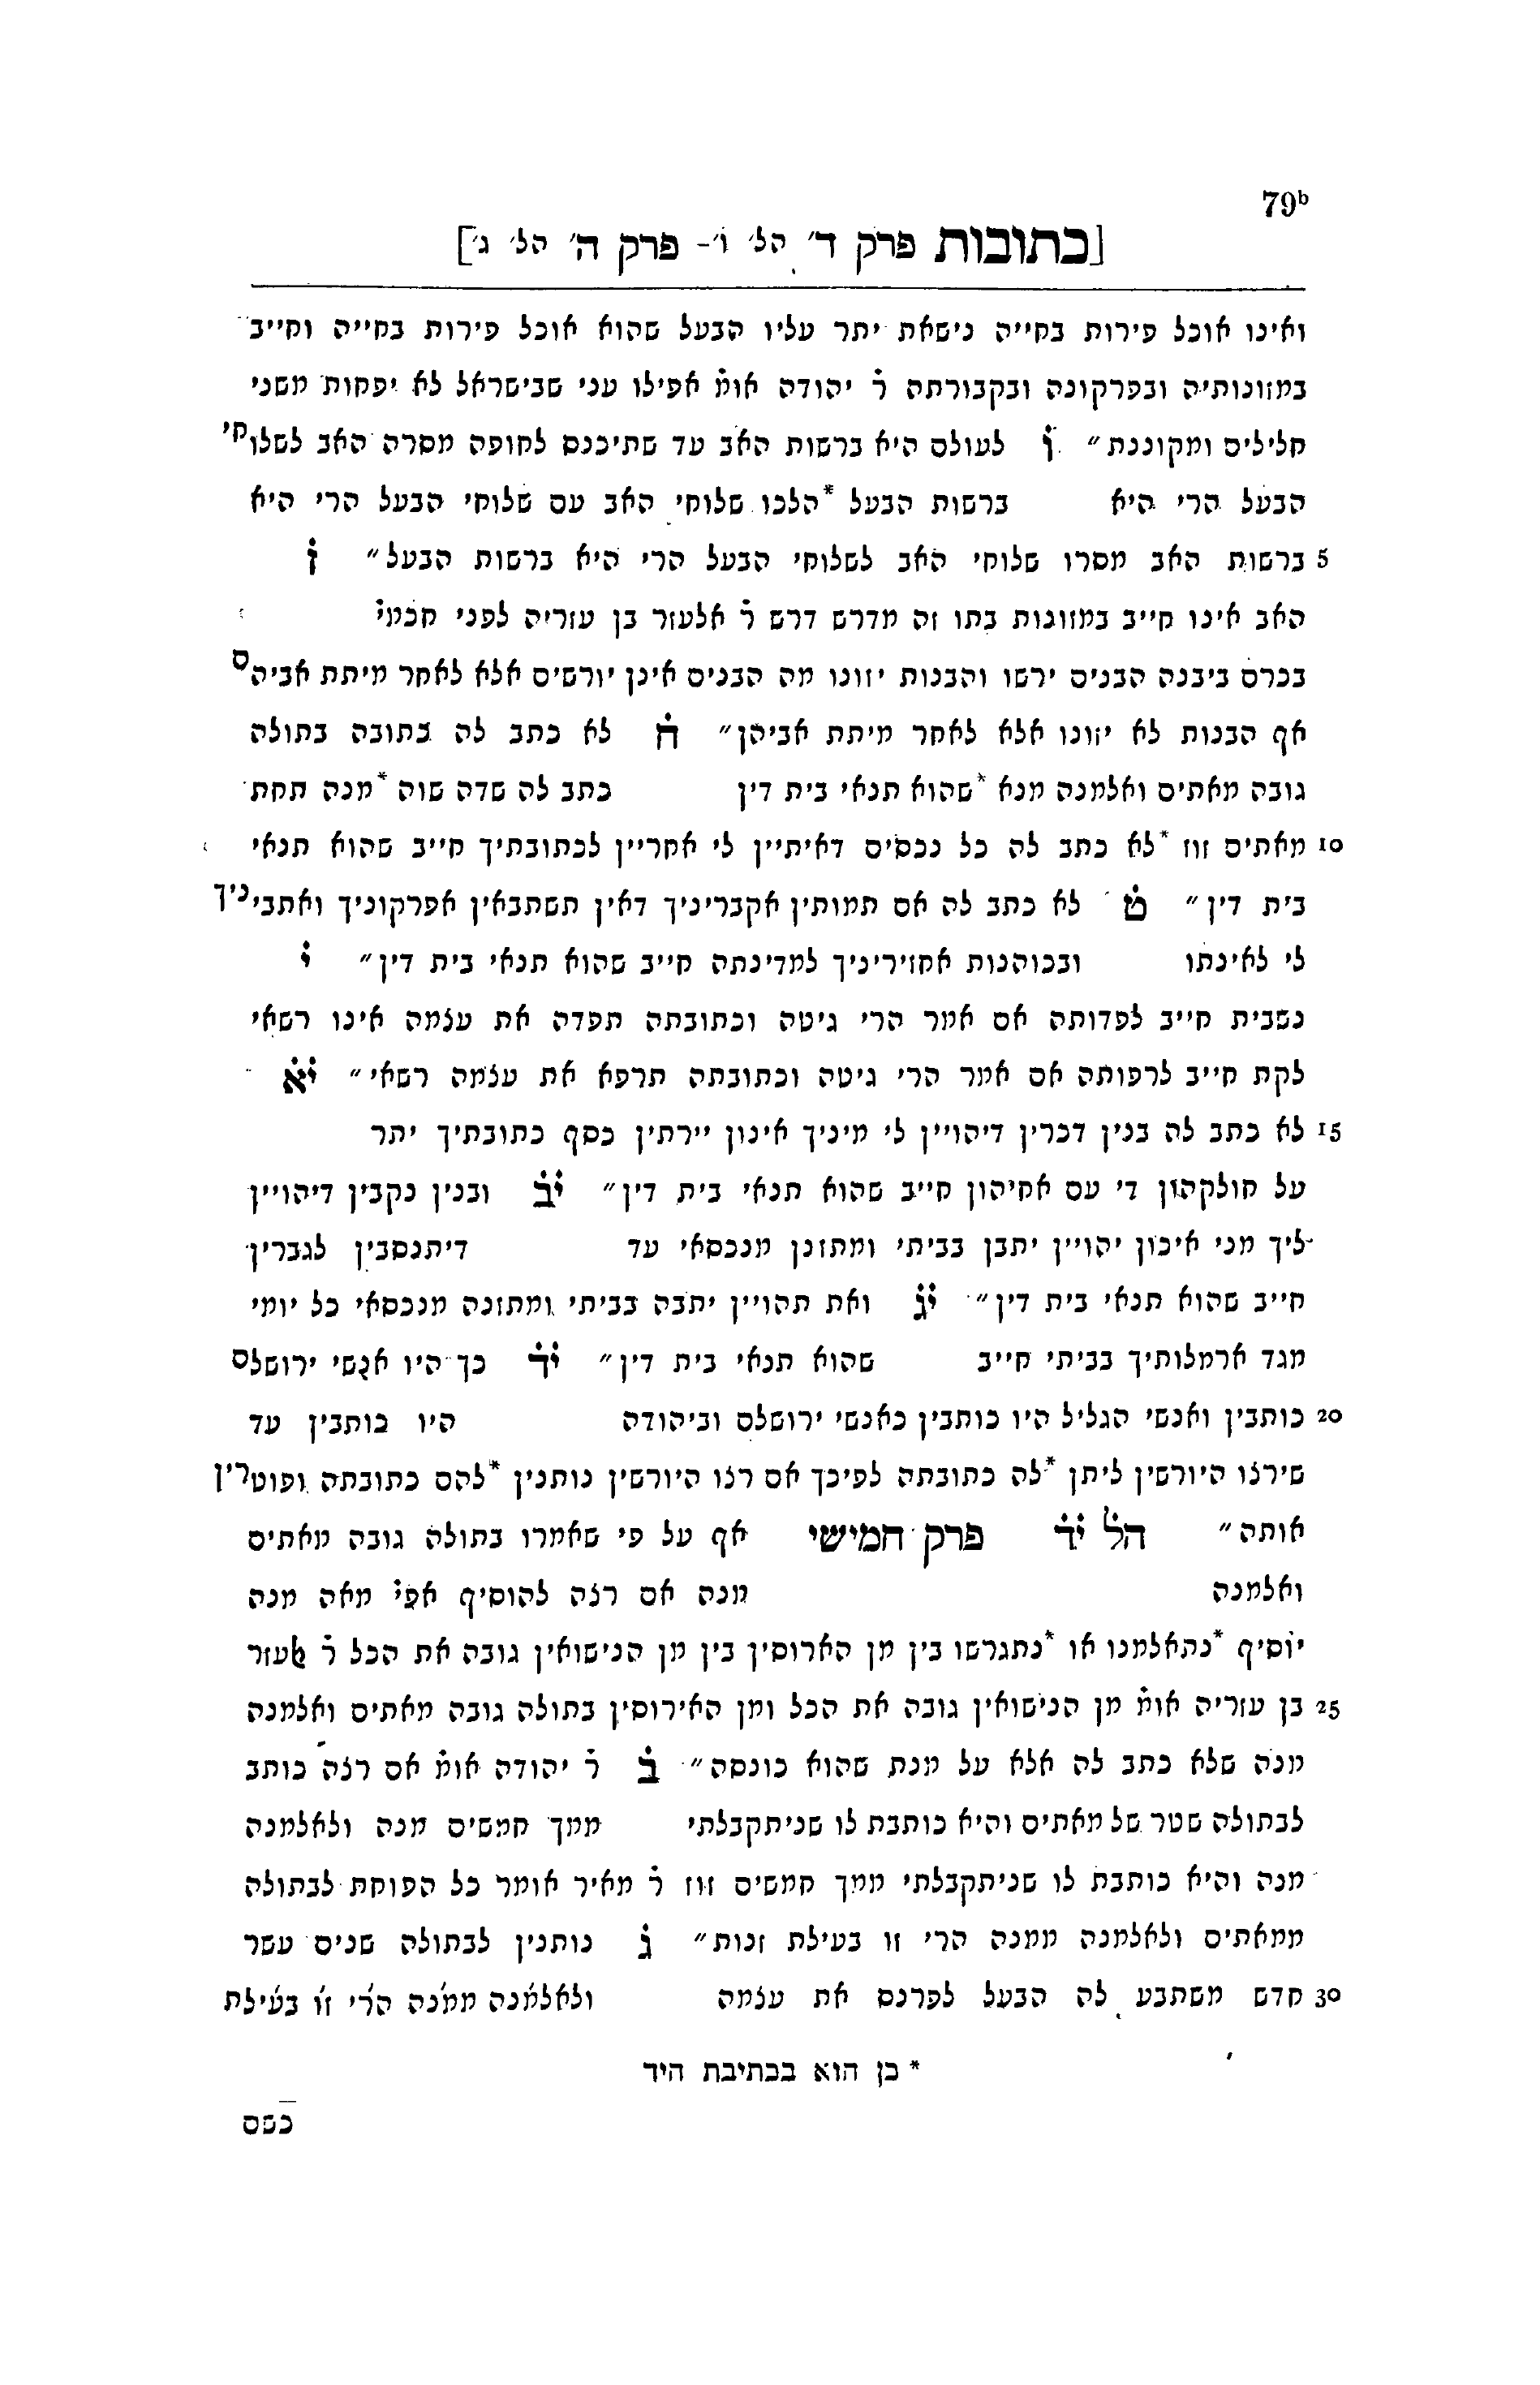 79b
[כתובות פרק ד' הל' ו'- פרק ה' הל' ג']
ואינו אוכל פירות בחייה נישאת יתר עליו הבעל שהוא אוכל פירות בחייה וחייב
במזונותיה ובפרקונה ובקבורתה ר׳ יהודה אומ׳ אפילו עני שבישראל לא יפחות משני
חלילים ומקוננת״ ו לעולם היא ברשות האב עד שתיכנס לחופה מסרה האב לשלוחי
הבעל הרי היא ברשות הבעל *הלכו שלוחי האב עם שלוחי הבעל הרי היא
5 ברשות האב מסרו שלוחי האב לשלוחי הבעל הרי היא ברשות הבעל״ ז
האב אינו חייב במזונות בתו זה מדרש דרש ר׳ אלעזר בן עזריה לפני חכמי׳
בכרם ביבנה הבנים ירשו והבנות יזונו מה הבנים אינן יורשים אלא לאחר מיתת אביהם
אף הבנות לא יזונו אלא לאחר מיתת אביהן״ ח לא כתב לה כתובה בתולה
גובה מאתים ואלמנה מנא *שהוא תנאי בית דין כתב לה שדה שוה *מנה תחת
10 מאתים זוז *לא כתב לה כל נכסים דאיתיין לי אחריין לכתובתיך חייב שהוא תנאי
בית דין״ ט לא כתב לה אם תמותין אקבריניך דאין תשתבאין אפרקוניך ואתביניך
לי לאינתו ובכוהנות אחזיריניך למדינתה חייב שהוא תנאי בית דין״ י
נשבית חייב לפדותה אם אמר הרי גיטה וכתובתה תפדה את עצמה אינו רשאי
לקת חייב לרפותה אם אמר הרי גיטה וכתובתה תרפא את עצמה רשאי״ יא
15 לא כתב לה בנין דכרין דיהויין לי מיניך אינון יירתין כסף כתובתיך יתר
על חולקהון די עם אחיהון חייב שהוא תנאי בית דין״ יב ובנין נקבין דיהויין
ליך מני אינון יהויין יתבן בביתי ומתזנן מנכסאי עד דיתנסבין לגברין
חייב שהוא תנאי בית דין״ יג ואת תהויין יתבה בביתי ומתזנה מנכסאי כל יומי
מגד ארמלותיך בביתי חייב שהוא תנאי בית דין״ יד כך היו אנשי ירושלם
20 כותבין ואנשי הגליל היו כותבין כאנשי ירושלם וביהודה היו כותבין עד
שירצו היורשין ליתן *לה כתובתה לפיכך אם רצו היורשין נותנין *להם כתובתה ופוטרין
אותה״ הל יד פרק חמישי אף על פי שאמרו בתולה גובה מאתים
ואלמנה מנה אם רצה להוסיף אפי׳ מאה מנה
יוסיף *נתאלמנו או *נתגרשו בין מן הארוסין בין מן הנישואין גובה את הכל ר׳ אלעזר
25 בן עזריה אומ׳ מן הנישואין גובה את הכל ומן האירוסין בתולה גובה מאתים ואלמנה
מנה שלא כתב לה אלא על מנת שהוא כונסה״ ב ר׳ יהודה אומ׳ אם רצה כותב
לבתולה שטר של מאתים והיא כותבת לו שניתקבלתי ממך חמשים מנה ולאלמנה
מנה והיא כותבת לו שניתקבלתי ממך חמשים זוז ר׳ מאיר אומר כל הפוחת לבתולה
ממאתים ולאלמנה ממנה הרי זו בעילת זנות״ ג נותנין לבתולה שנים עשר
30 חדש משתבע לה הבעל לפרנס את עצמה ולאלמנה ממנה הרי זו בעילת
* כן הוא בכתיבת היד
כשם